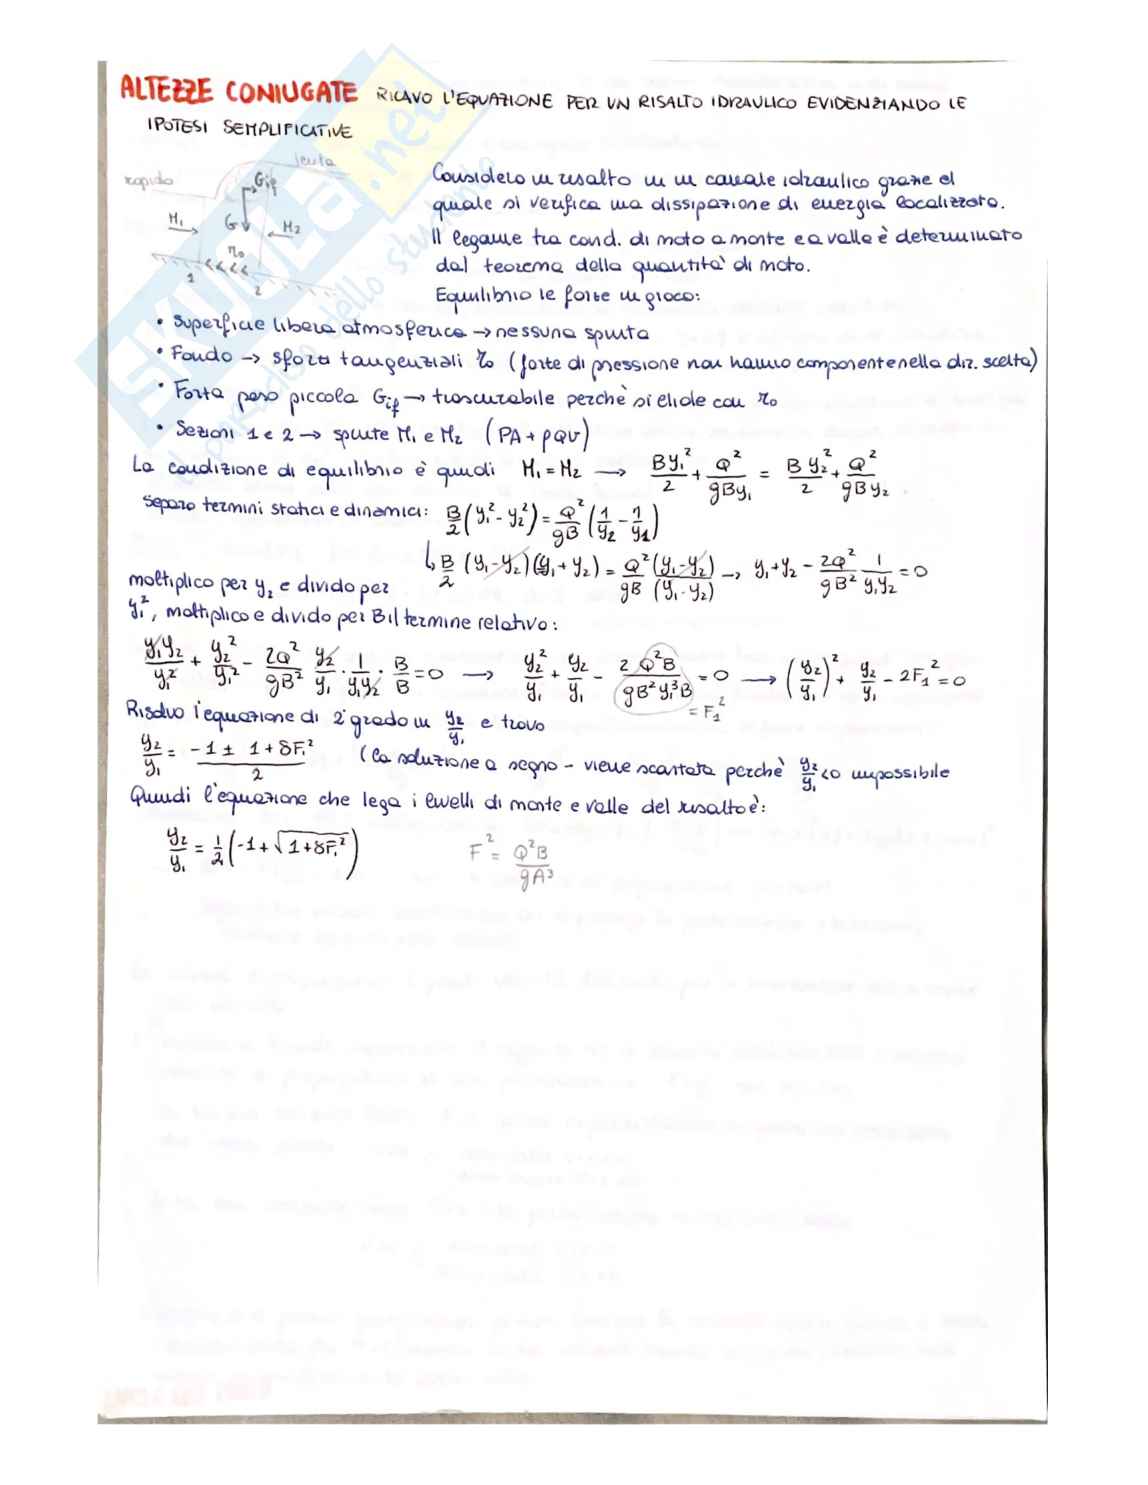 ALTEZZE CONIUGATE RICAVO L'EQUAZIONE PER UN RISALTO IDRAULICO EVIDENZIANDO LE
IPOTESI SEMPLIFICATIVE
rapido
lenta
Gif
M1
G
M2
τ0
1
2
Considero un risalto in un canale idraulico grazie al
quale si verifica una dissipazione di energia localizzata.
Il legame tra cond. di moto a monte e a valle è determinato
dal teorema della quantità di moto.
Equilibrio le forze in gioco:
• Superficie libera atmosferica → nessuna spinta
• Fondo → sforzi tangenziali τ0 (forze di pressione non hanno componente nella dir. scelta)
• Forza peso piccola Gif → trascurabile perchè si elide con τ0
• Sezioni 1 e 2 → spinte M1 e M2 (PA + ρQV)
La condizione di equilibrio è quindi M1 = M2 → By1²/2 + Q²/gBy1 = By2²/2 + Q²/gBy2
Separo termini statici e dinamici: B/2 (y1² - y2²) = Q²/gB (1/y2 - 1/y1)
↳ B/2 (y1-y2)(y1+y2) = Q²(y1-y2)/gB (y1·y2) → y1+y2 - 2Q²/gB² 1/y1y2 = 0
moltiplico per y2 e divido per
y1², moltiplico e divido per B il termine relativo:
y1y2/y1² + y2²/y1² - 2Q²/gB² y2/y1 · 1/y1y2 · B/B = 0 → y2²/y1 + y2/y1 - 2Q²B/gB²y1³B = 0 → (y2/y1)² + y2/y1 - 2F1² = 0
= F1²
Risolvo l'equazione di 2° grado in y2/y1 e trovo
y2/y1 = -1 ± 1+8F1²/2 (la soluzione a segno - viene scartata perchè y2/y1 <0 impossibile
Quindi l'equazione che lega i livelli di monte e valle del risalto è:
y2/y1 = 1/2 (-1 + √1+8F1²) F² = Q²B/gA³
SKUOLA.net
il paradiso dello studente